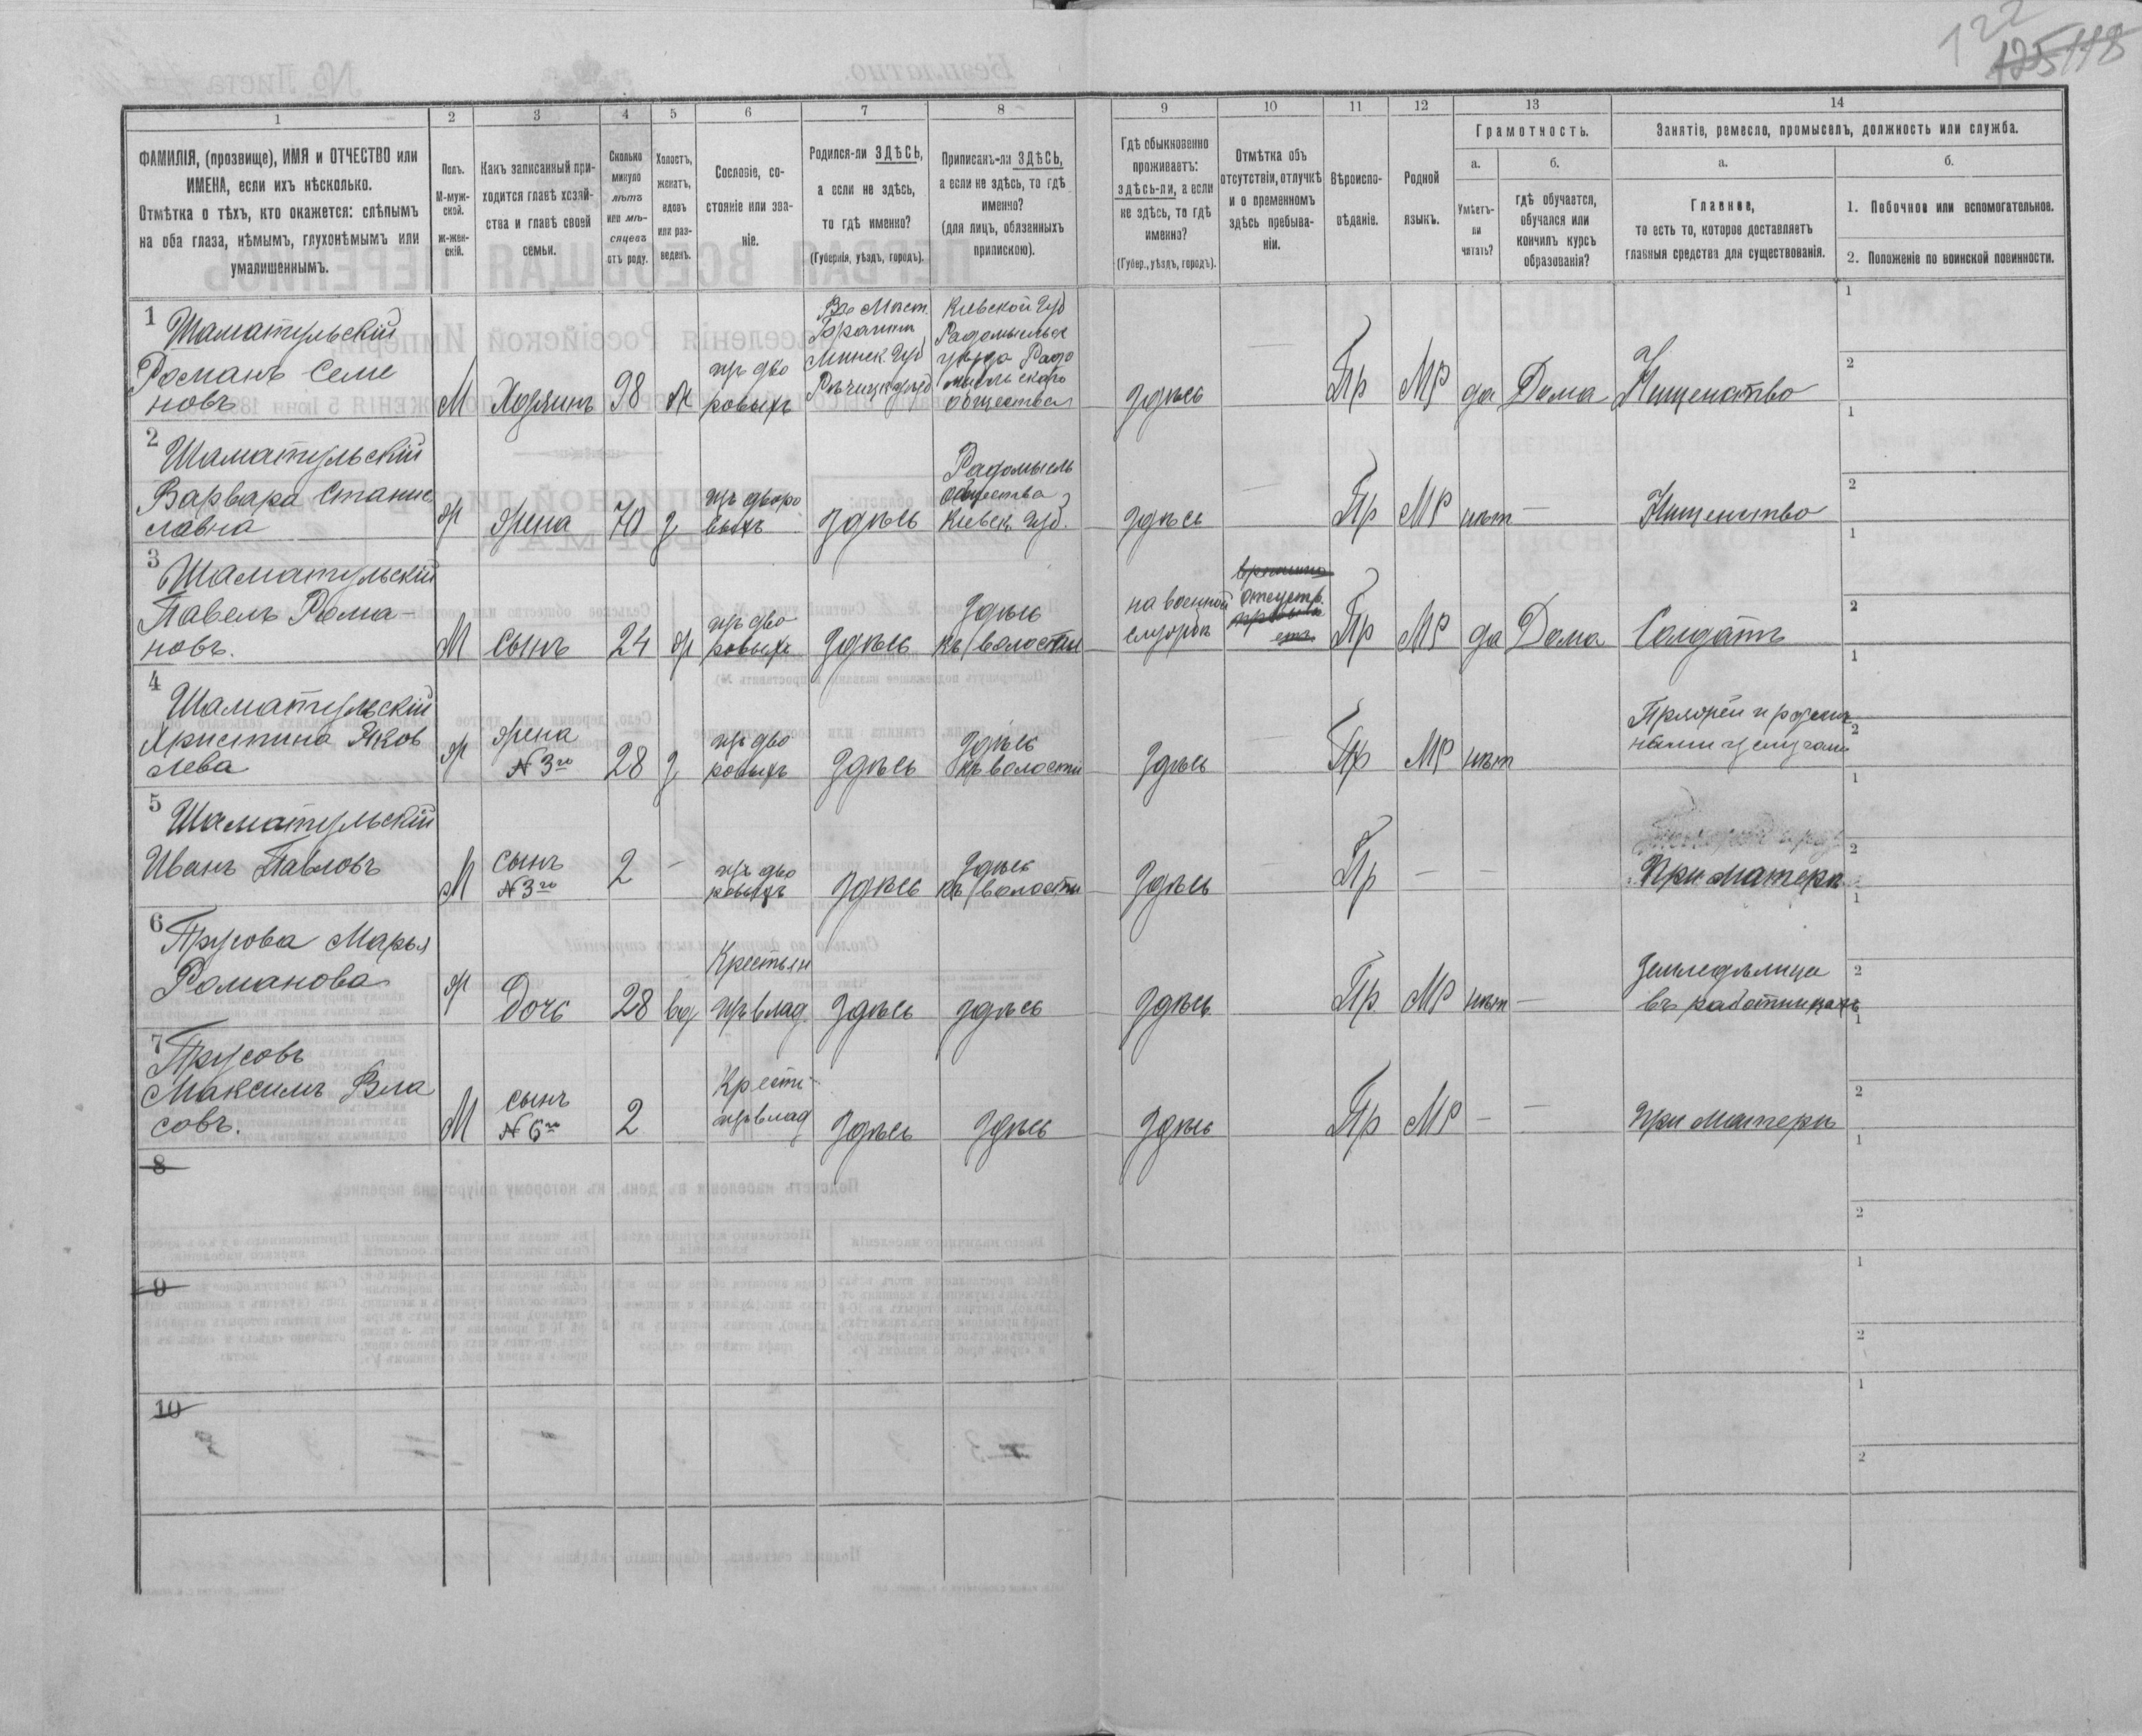 122
125 118
1 2 3 4 5 6 7 8 9 10 11 12 13 14
ФАМИЛІЯ, (прозвище), ИМЯ и ОТЧЕСТВО или
ИМЕНА, если ихъ нѣсколько.
Отмѣтка о тѣхъ, кто окажется: слѣпымъ
на оба глаза, нѣмымъ, глухонѣмымъ или
умалишеннымъ.
Полъ.
М-муж-
ской.
Ж-жен-
скій.
Какъ записанный при-
ходится главѣ хозяй-
ства и главѣ своей
семьи.
Сколько
минуло
лѣтъ
или мѣ-
сяцевъ
отъ роду.
Холостъ,
женатъ,
вдовъ
или раз-
веденъ.
Сословіе, со-
стояніе или зва-
ніе.
Родился-ли ЗДѢСЬ,
а если не здѣсь,
то гдѣ именно?
(Губернія, уѣздъ, городъ).
Приписанъ-ли ЗДѢСЬ,
а если не здѣсь, то гдѣ
именно?
(для лицъ, обязанныхъ
припискою).
Гдѣ обыкновенно
проживаетъ:
здѣсь-ли, а если
не здѣсь, то гдѣ
именно?
(Губер., уѣздъ, городъ).
Отмѣтка объ
отсутствіи, отлучкѣ
и о временномъ
здѣсь пребыва-
ніи.
Вѣроиспо-
вѣданіе.
Родной
языкъ.
Грамотность.
а. б.
Умѣетъ-
ли
читать?
гдѣ обучается,
обучался или
кончилъ курсъ
образованія?
Занятіе, ремесло, промыселъ, должность или служба.
а. б.
Главное,
то есть то, которое доставляетъ
главныя средства для существованія.
1. Побочное или вспомогательное.
2. Положеніе по воинской повинности.
1
Шаматульскій
Романъ Семе
новъ
М
Хозяинъ
98
ж
изъ дво
ровыхъ
Въ Мѣст.
Брагин
Минск. Губ
Рѣчицк уѣзд
Кіевской Губ
Радомысльск
уѣзда Радо
мысльскаго
общества
здѣсь
—
Пр
МР
да
Дома
Нищенство
1
2
2
Шаматульскій
Варвара Станис
лавна
ж
жена
70
з
изъ дворо
выхъ
здѣсь
Радомысль
общества
Кіевск Губ.
здѣсь
—
Пр
МР
нѣт
—
Нищенство
1
2
3
Шаматульскій
Павелъ Рома-
новъ.
М
Сынъ
24
ж
изъ дво
ровыхъ
здѣсь
здѣсь
къ волости
на военной
службѣ
отсутр.
Пр
МР
да
Дома
Солдатъ
1
2
4
Шаматульскій
Христина Яков
лева
ж
жена
№ 3го
28
з
изъ дво
ровыхъ
здѣсь
здѣсь
къ волости
здѣсь
—
Пр
МР
нѣт
услугами
1
2
5
Шаматульскій
Иванъ Павловъ
М
сынъ
№ 3го
2
—
изъ дво
ровыхъ
здѣсь
здѣсь
къ волости
здѣсь
—
Пр
—
—
При матери
1
2
6
Прусова Марья
Романова
ж
Дочь
28
вд
Крестьян
изъ влад.
здѣсь
здѣсь
здѣсь
Пр.
МР
нѣт
—
Земледѣлица
въ работницахъ
1
2
7
Прусовъ
Максимъ Вла
совъ.
М
сынъ
№ 6го
2
Крести-
изъ влад
здѣсь
здѣсь
здѣсь
Пр
МР
—
—
при матери
1
2
8
1
2
9
1
2
10
1
2